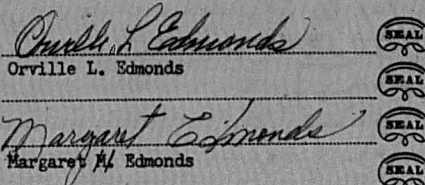 Orville L Edmonds SEAL
Orville L. Edmonds
SEAL
Margaret Edmonds SEAL
Margaret M. Edmonds
SEAL